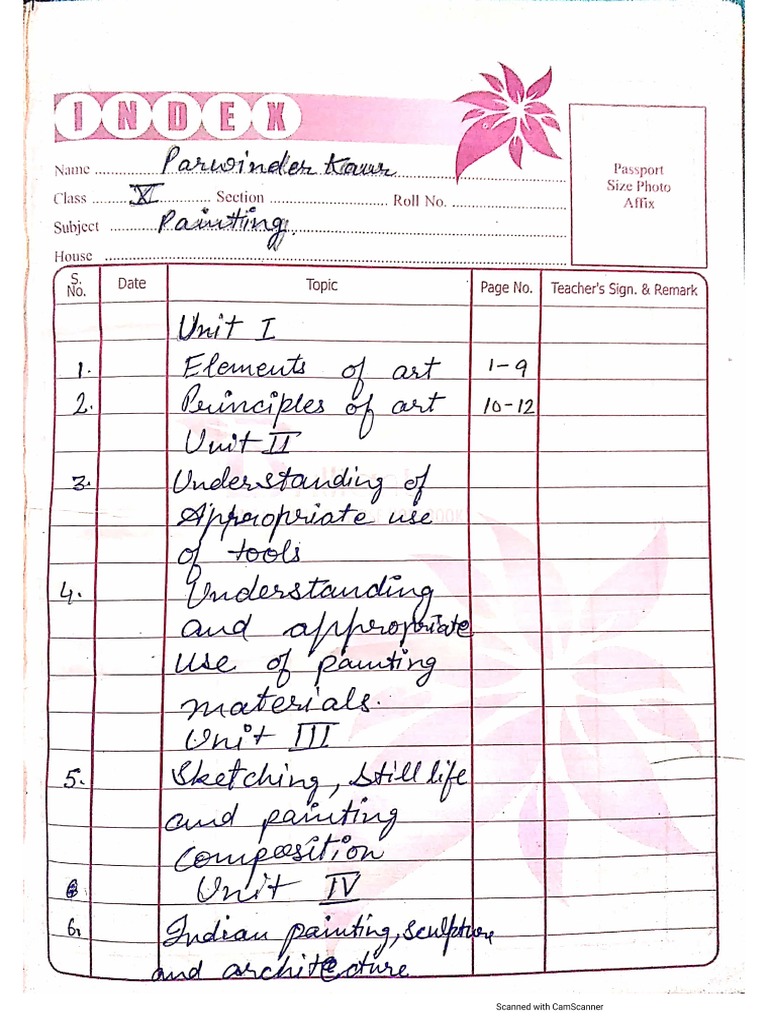 INDEX
Name Parwinder Kaur
Class XI Section Roll No.
Subject Painting.
House
Passport
Size Photo
Affix
S. No. Date Topic Page No. Teacher's Sign. & Remark
Unit I
1. Elements of art 1-9
2. Principles of art 10-12
Unit II
3. Understanding of
Appropriate use
of tools
4. Understanding
and appropriate
use of painting
materials.
Unit III
5. Sketching, still life
and painting
composition
6 Unit IV
6. Indian painting, sculpture
and architecture
Scanned with CamScanner